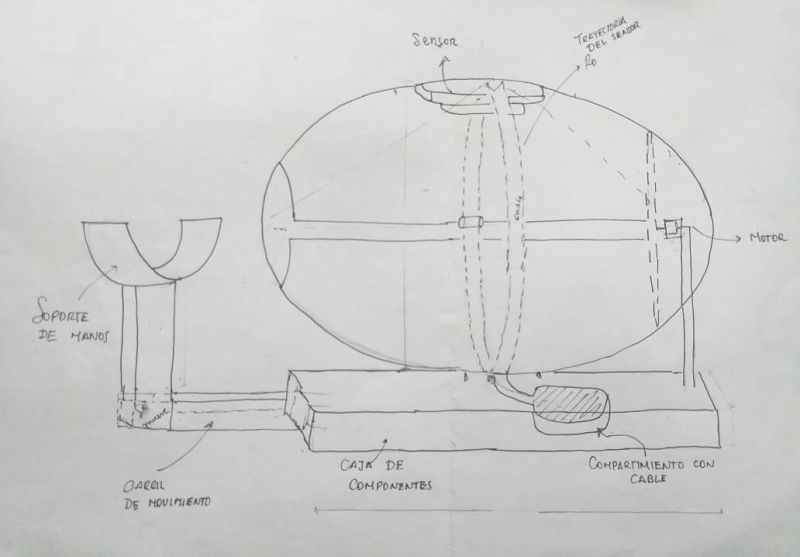 Sensor
TRAYECTORIA
DEL SENSOR
MOTOR
SOPORTE
DE MANOS
mueve
CARRIL
DE MOVIMIENTO
CAJA DE
COMPONENTES
COMPARTIMIENTO CON
CABLE